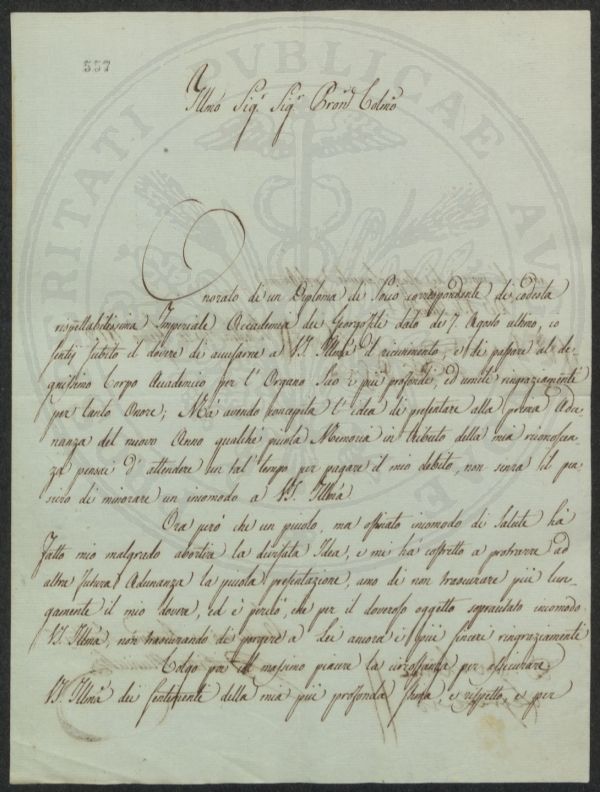 557
Illmo Sigr. Sigr. Pron. Colmo
Onorato di un Diploma di Socio corrispondente di codesta
rispettabilissima Imperiale Accademia dei Georgofili dato de 7. Agosto ultimo, io
sentij subito il dovere di accusarne a VS. Illma il ricevimento, e di passare al de-
gnissimo Corpo Accademico per l'Organo Suo i più profondi, ed umili ringraziamenti
per tanto Onore; Mà avendo concepita l'idea di presentare alla prima Adu-
nanza del nuovo Anno qualche piccola Memoria in tributo della mia riconoscen-
za pensai d'attendere un tal tempo per pagare il mio debito, non senza il pen-
siero di minorare un incomodo a VS. Illma
Ora però che un piccolo, ma ostinato incomodo di Salute hà
fatto mio malgrado abortire la divisata Idea, e mi hà costretto a protrarre ad
altra futura Adunanza la piccola presentazione, amo di non trascurare più lun-
gamente il mio dovere, ed è perciò, che per il doveroso oggetto sopracitato incomodo
VS. Illma, non trascurando di porgere a Lei ancora i più sinceri ringraziamenti
Colgo poi col massimo piacere la circostanza per assicurare
VS. Illma dei sentimenti della mia più profonda stima, e rispetto, e per
PVBLICAE